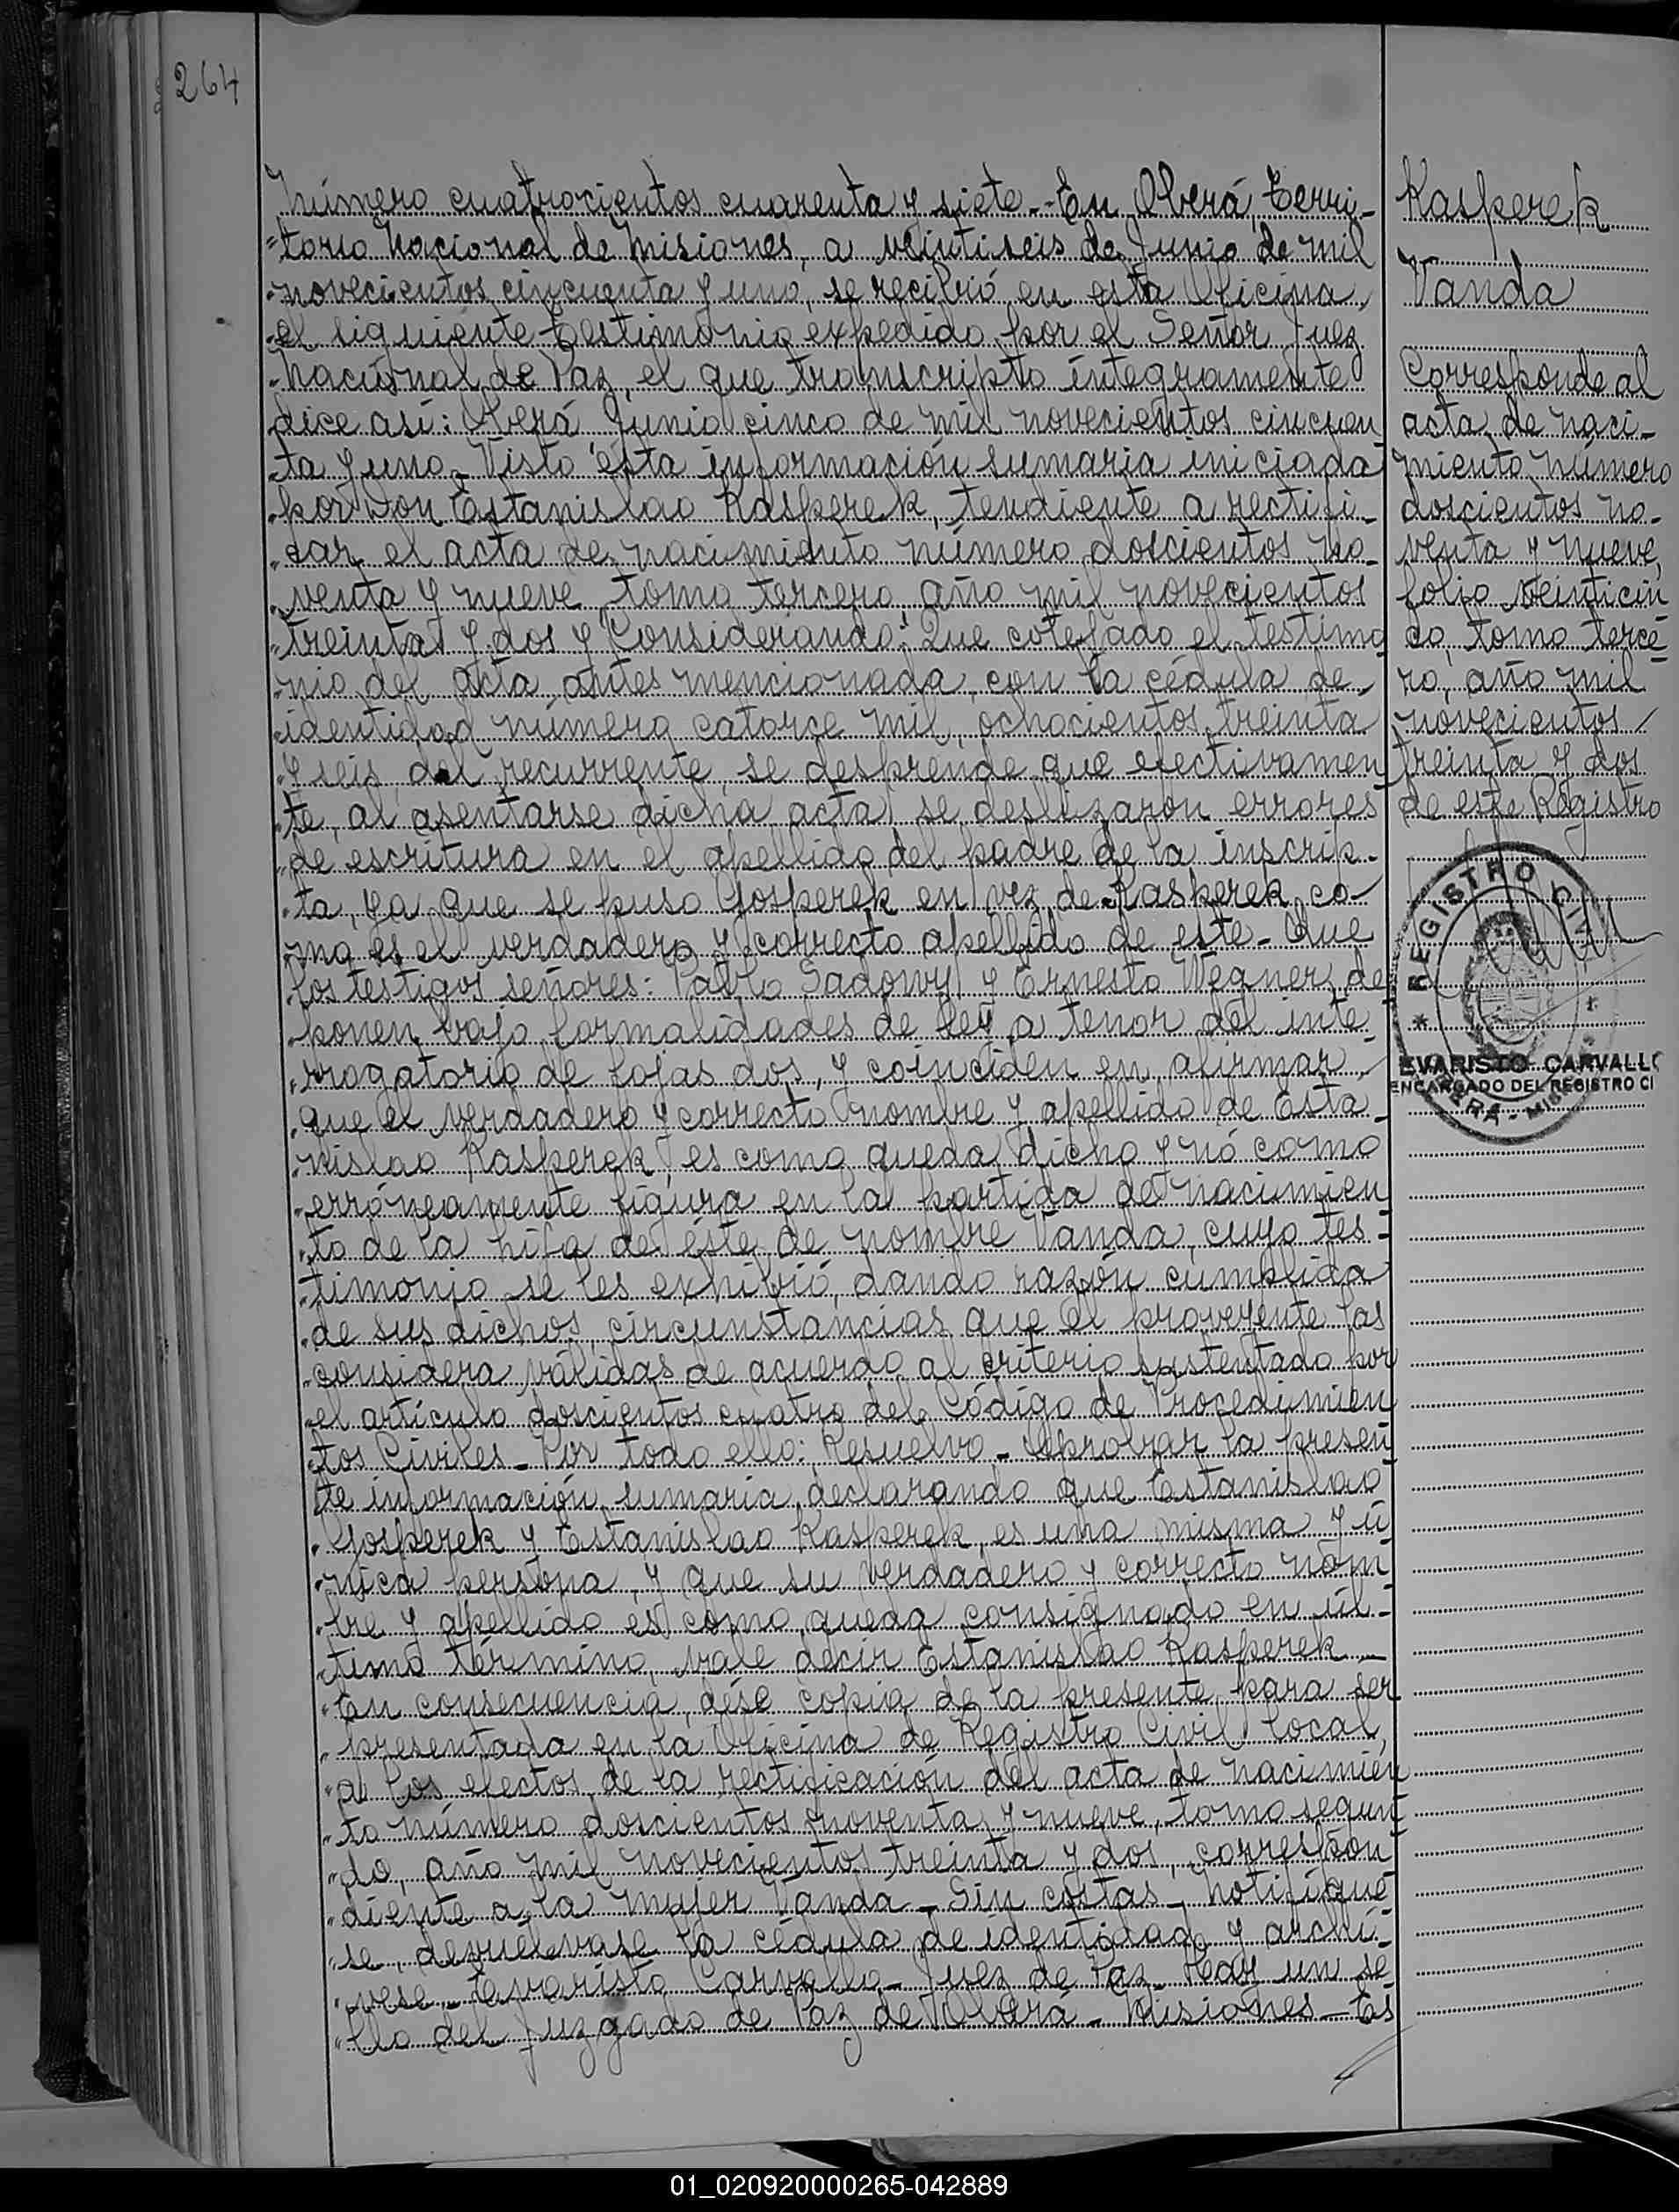 264
Número cuatrocientos cuarenta y siete.- En Oberá, Terri-
torio Nacional de Misiones, a veintiseis de Junio de mil
novecientos cincuenta y uno, se recibió en esta Oficina,
el siguiente testimonio expedido por el Señor Juez
Nacional de Paz, el que transcripto íntegramente
dice así: Oberá Junio cinco de mil novecientos cincuen
ta y uno.- Visto ésta información sumaria iniciada
por Don Estanislao Kasperek, tendiente a rectifi-
car el acta de nacimiento número doscientos no-
venta y nueve, tomo tercero, año mil novecientos
treinta y dos y "Considerando": Que cotejado el testimo
nio del acta antes mencionada, con la cédula de
identidad número catorce mil, ochocientos treinta
y seis, del recurrente, se desprende que efectivamen
te, al asentarse dicha acta, se deslizaron errores
de escritura en el apellido del padre de la inscrip-
ta, ya que se puso Gosperek en vez de Kasperek, co-
mo es el verdadero y correcto apellido de este.- Que
los testigos señores: Pablo Sadowy y Ernesto Wegner, de
ponen bajo formalidades de ley a tenor del inte
rrogatorio de fojas dos, y coinciden en afirmar,
que el verdadero y correcto nombre y apellido de Esta-
nislao Kasperek, es como queda dicho y nó como
erróneamente figura en la partida de nacimien
to de la hija de éste, de nombre Vanda, cuyo tes-
timonio se les exhibió, dando razón cumplida
de sus dichos, circunstancias que el proveyente las
considera válidas de acuerdo al criterio sustentado por
el artículo doscientos cuatro del Código de Procedimien
tos Civiles.- Por todo ello: Resuelvo.- Aprobar la presen
te información sumaria, declarando que Estanislao
Gosperek y Estanislao Kasperek, es una misma y ú
nica persona, y que su verdadero y correcto nom
bre y apellido es como queda consignado en úl-
timo término, vale decir Estanislao Kasperek.-
En consecuencia, dése copia de la presente para ser
presentada en la Oficina de Registro Civil local,
a los efectos de la rectificación del acta de nacimien
to número doscientos noventa y nueve, tomo segun
do, año mil novecientos treinta y dos, correspon
diente a la mujer Vanda.- Sin costas.- Notifíque
se, devuelvase la cédula de identidad y archí-
vese.- Evaristo Carvallo.- Juez de Paz.- Hay un se
llo del Juzgado de Paz de Oberá - Misiones.- Es
Kasperek
Vanda
Corresponde al
acta de naci-
miento número
doscientos no-
venta y nueve,
folio veinticin
co, tomo terce-
ro, año mil
novecientos
treinta y dos
de este Registro
REGISTRO CIVIL
EVARISTO CARVALLO
ENCARGADO DEL REGISTRO CI
OBERÁ - MISIONES
01_020920000265-042889